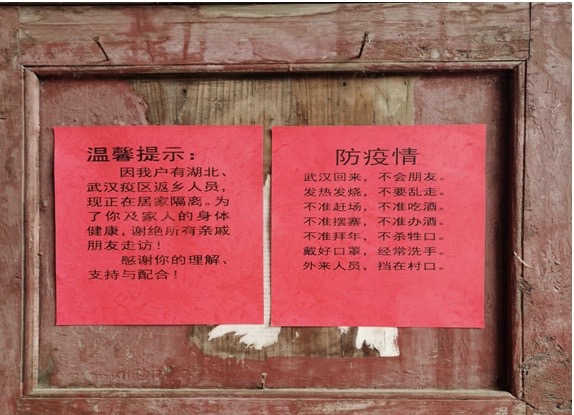 温馨提示：
因我户有湖北、
武汉疫区返乡人员，
现正在居家隔离。为
了你及家人的身体
健康，谢绝所有亲戚
朋友走访！
感谢你的理解、
支持与配合！
防疫情
武汉回来，不会朋友。
发热发烧，不要乱走。
不准赶场，不准吃酒。
不准摆寨，不准办酒。
不准拜年，不杀牲口。
戴好口罩，经常洗手。
外来人员，挡在村口。